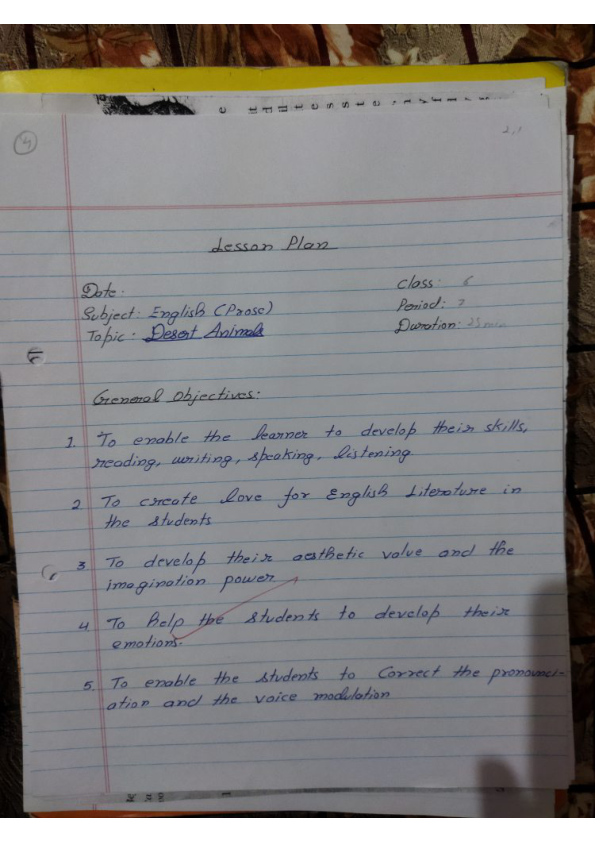 4
2,1
Lesson Plan
Date:
Class: 6
Subject: English (Prose)
Period: 7
Topic: Desert Animals
Duration: 35 min
General Objectives:
1. To enable the learner to develop their skills,
reading, writing, speaking, listening
2 To create love for English Literature in
the students
3 To develop their aesthetic value and the
imagination power
4. To help the students to develop their
emotions.
5. To enable the students to Correct the pronounci-
ation and the voice modulation